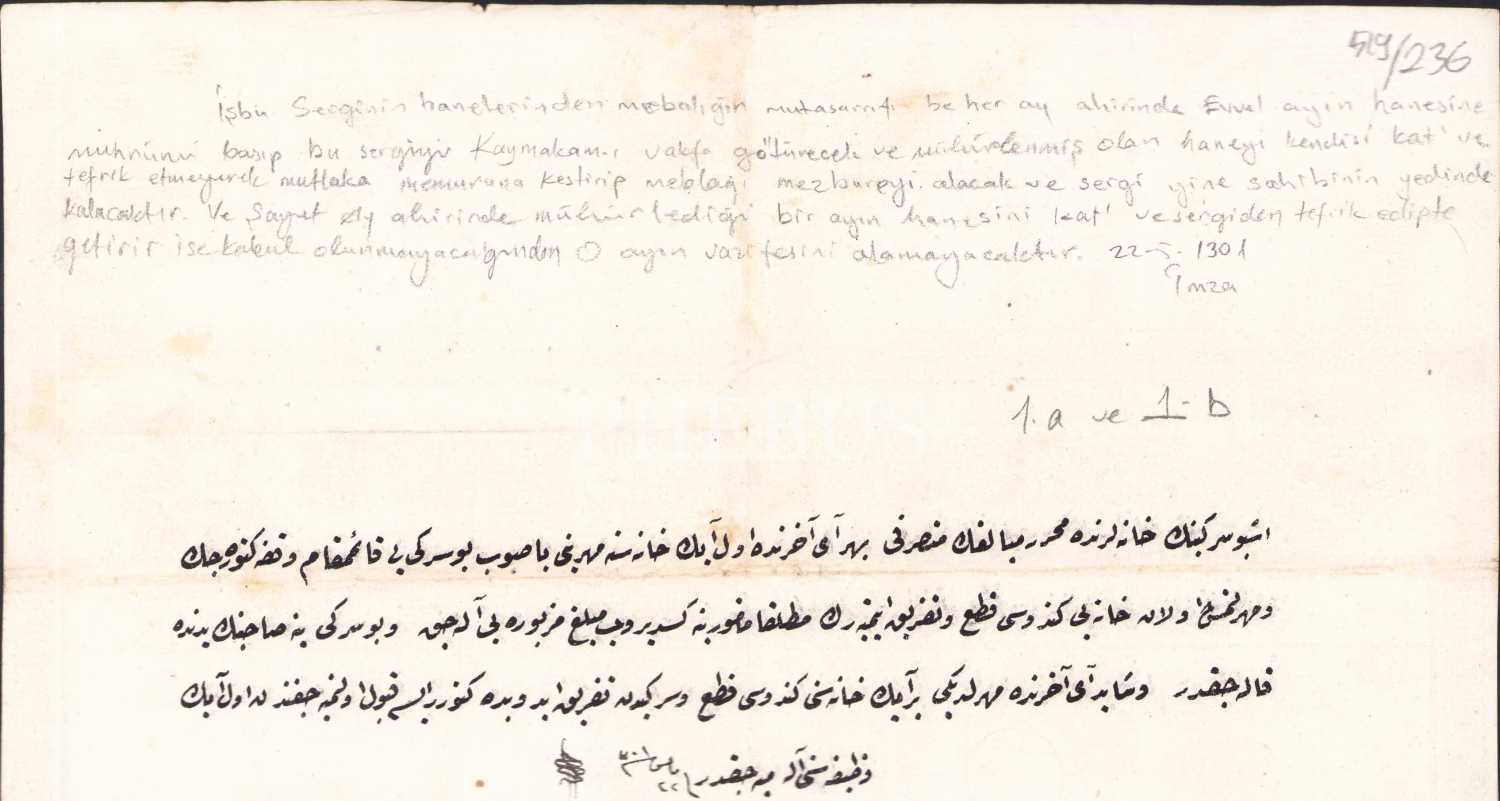 519/236
İşbu Serginin hanelerinden mebaliğin mutasarrıfı be her ay ahirinde Evvel ayın hanesine
mührünü basıp bu sergiyi Kaymakam-ı vakfa götürecek ve mühürlenmiş olan haneyi kendisi kat' ve
tefrik etmeyerek mutlaka memuruna kestirip meblağı mezbureyi alacak ve sergi yine sahibinin yedinde
kalacaktır. Ve Şayet ay ahirinde mühürlediği bir ayın hanesini kat' ve sergiden tefrik edipte
getirir ise kabul olunmayacağından O ayın vazifesini alamayacaktır. 22-5-1301
İmza
PHEBUS
1.a ve 1-b
اشبو سركينك خانه لرنده محرر مبالغك متصرفى بهر آى آخرنده اول آيك خانه سنه مهرينى باصوب بو سركى يى قائمقام وقفه كتوره جك
ومهرلنمش اولان خانه يى كندوسى قطع وتفريق ايتميه رك مطلقا مأمورينه كسديروب مبلغ مزبوره يى آله جق وبو سركى ينه صاحبنك يدنده
قاله جقدر وشايد آى آخرنده مهرلديكى بر آيك خانه سنى كندوسى قطع وسركيدن تفريق ايدوبده كتورر ايسه قبول اولنميه جغندن اول آيك
وظيفه سنى آله ميه جقدر